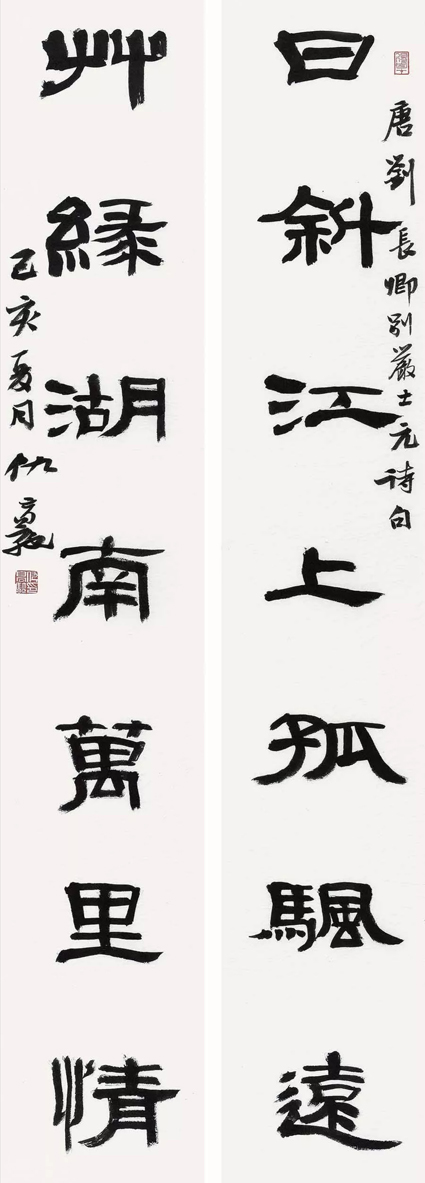 唐劉長卿別嚴士元詩句
日斜江上孤颿遠
艸綠湖南萬里情
己亥夏月仇高馳